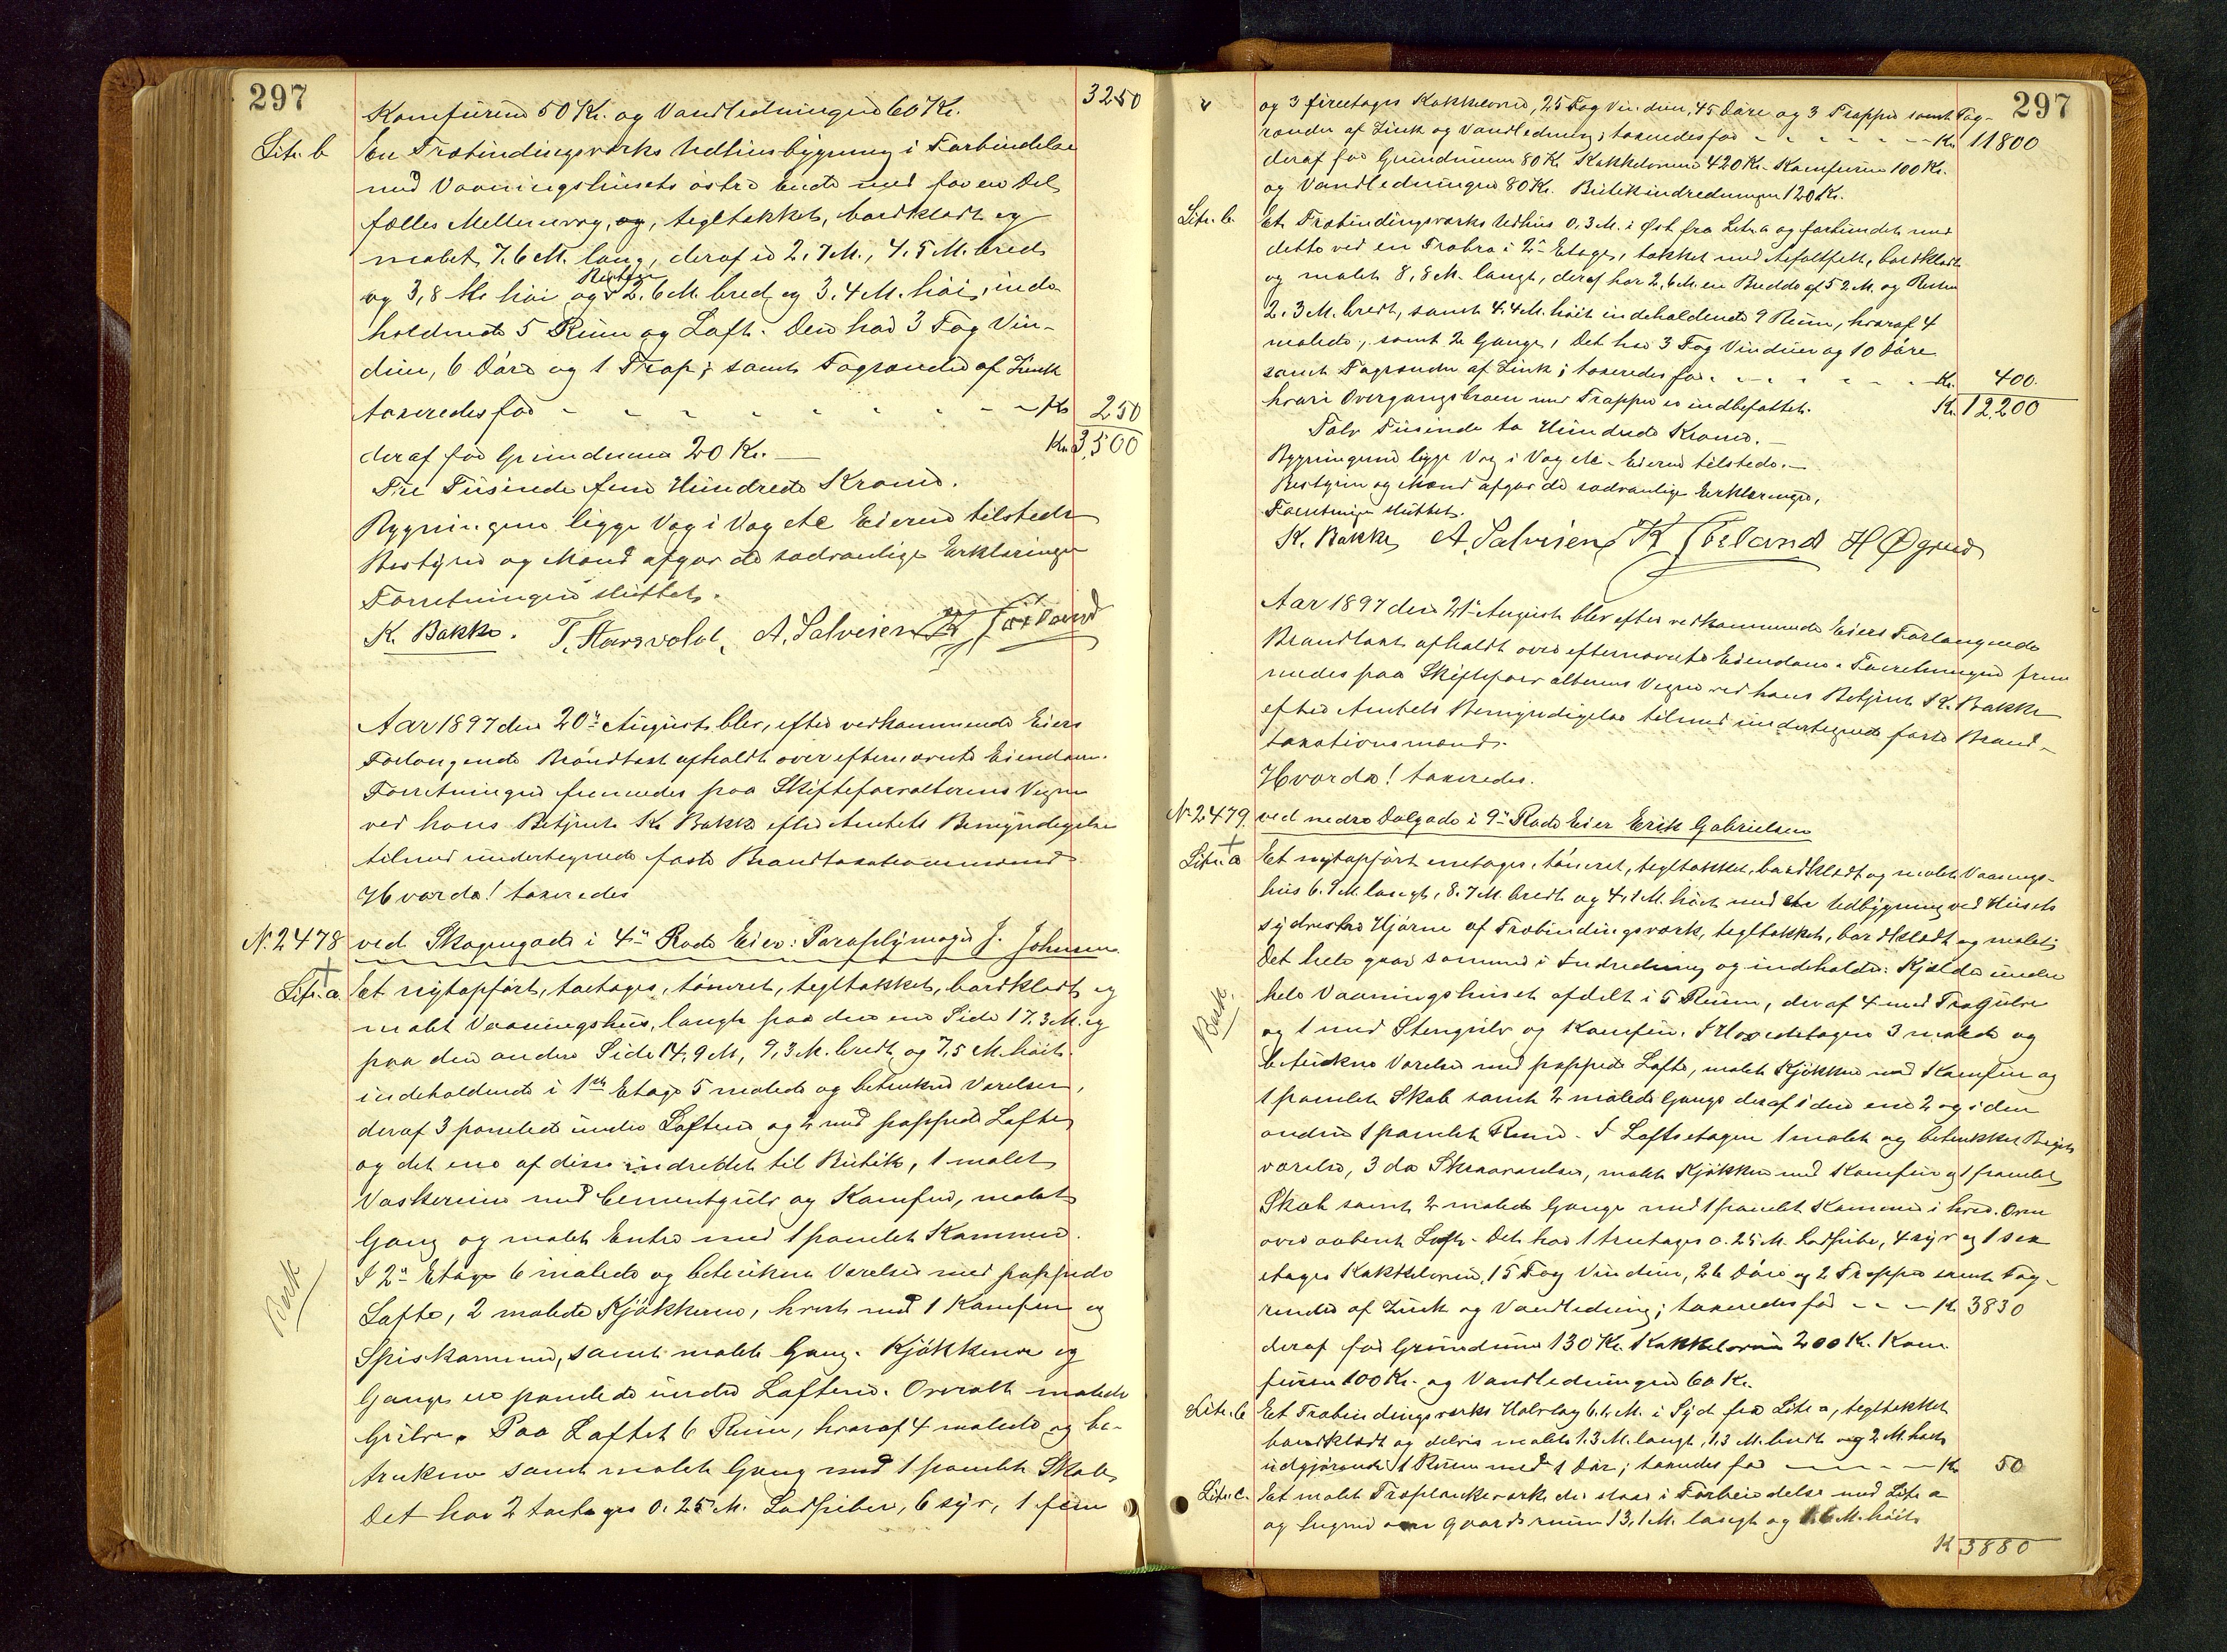 297
Komfurene 50 Kr. og Vandledningen 60 Kr. 3250
Litr. b En Træbindingsværks Udhusbygning i Forbindelse
med Vaaningshusets østre Ende med for en Del
fælles Mellemvæg, og, tegltækket, bordklædt og
malet, 7.6 M. lang, deraf er 2,7 M., 4.5 M. bred
og 3,8 M. høi og Resten 2.6 M. bred og 3.4 M. høi, inde-
holdende 5 Rum og Loft. Den har 3 Fag Vin-
duer, 6 Døre og 1 Trap; samt Tagrender af Zink
taxeredes for - - - - - Kr 250
deraf for Grundmuren 20 Kr. — Kr. 3,500
Tre Tusinde fem Hundrede Kroner.
Bygningerne ligge Væg i Væg etc Eieren tilstede
Bestyrer og Mænd afgav de sædvanlige Erklæringer
Forretningen sluttet.
K. Bakke. T. Stangvold, A. Salvesen K Føreland
Aar 1897 den 20de August blev, efter vedkommende Eiers
Forlangende Brandtaxt afholdt over efternævnte Eiendom.
Forretningen fremmedes paa Skifteforvalterens Vegne
ved hans Betjent K. Bakke efter Amtets Bemyndigelse
tilmed undertegnede faste Brandtaxationsmænd.
Hvorda! taxeredes
No. 2478 ved Skagengade i 4de Rode Eier: Paraplymager J. Johnsen
Litr. a Et nytopført, toetages, tømret, tegltækket, bordklædt og
malet Vaaningshus, langt paa den ene Side 17.3 M. og
paa den anden Side 14,9 M, 9,3 M. bredt og 7,5 M. høit.
indeholdende i 1ste Etage 5 malede og betrukne Værelser,
deraf 3 panelede under Loftene og 2 med pappede Lofter
og det ene af disse indredet til Butik, 1 malet
Vaskerum med Cementgulv og Komfur, malet
Gang og malet Entre med 1 panelet Kammer.
I 2den Etage 6 malede og betrukne Værelser med pappede
Lofte, 2 malede Kjøkkener, hvert med 1 Komfur og
Spiskammer, samt malet Gang. Kjøkkener og
Gange ere panelede under Loftene. Overalt malede
Gulve. Paa Loftet 6 Rum, hvoraf 4 malede og be-
trukne samt malet Gang med 1 panelet Skab
Det har 2 toetages 0.25 M. Lodpiber, 6 syv, 1 fem
Besk
297
og 3 fireetages Kakkelovne, 25 Fag Vinduer, 45 Døre og 3 Trapper samt Tag-
render af Zink og Vandledning; taxeredes for - - - - Kr 11800
deraf for Grundmuren 80 Kr Kakkelovnene 420 Kr. Komfurene 100 Kr.
og Vandledningen 80 Kr. Butikindredningen 120 Kr.
Litr. b. Et Træbindingsværks Udhus 0,3 M. i Øst fra Litr. a og forbundet med
dette ved en Træbro i 2den Etage, tækket med Asfaltfilt, bordklædt
og malet 8,8 M. langt, deraf har 2,6 M. en Bredde af 5 2 M. og Resten
2.3 M. bredt, samt 4.4 M. høit indeholdende 9 Rum, hvoraf 4
malede, samt 2 Gange, Det har 3 Fag Vinduer og 10 Døre
samt Tagrender af Zink; taxeredes for - - - - Kr. 400.
hvori Overgangsbroen med Trappe er indbefattet. Kr. 12,200
Tolv Tusinde to Hundrede Kroner.—
Bygningerne ligge Væg i Væg etc. Eieren tilstede.—
Bestyrer og Mænd afgav de sædvanlige Erklæringer,
Forretningen sluttet.
K. Bakke A. Salvesen K Føreland H Øgreid
Aar 1897 den 21de August blev efter vedkommende Eiers Forlangende
Brandtaxt afholdt over efternævnte Eiendom. Forretningen frem-
medes paa Skifteforvalterens Vegne ved hans Betjent K. Bakke
efter Amtets Bemyndigelse tilmed undertegnede faste Brand-
taxationsmænd.
Hvorda! taxeredes.
No. 2479. ved nedre Dalgade i 9de Rode Eier Erik Gabrielsen
Litr. a Et nytopført enetages, tømret, tegltækket, bordklædt og malet Vaanings-
hus 6.9 M. langt, 8.7 M. bredt og 4,1 M. høit med en Udbygning ved Husets
sydvestre Hjørne af Træbindingsværk, tegltækket, bordklædt og malet;
Det hele gaar sammen i Indredning og indeholder: Kjelder under
hele Vaaningshuset afdelt i 5 Rum, deraf 4 med Trægulve
og 1 med Stengulv og Komfur. I Hovedetagen 3 malede og
betrukne Værelser med pappede Lofte, malet Kjøkken med Komfur og
1 panelet Skab samt 2 malede Gange deraf i den ene 2 og i den
anden 1 panelet Rum. I Loftsetagen 1 malet og betrukket Bryst-
værelse, 3 do Skraaværelser, malet Kjøkken med Komfur og 1 panelet
Skab samt 2 malede Gange med 1 panelet Kammer i hver. Oven
over aabent Loft. Det har 1 treetages 0.25 M. Lodpibe, 4 syv og 1 sex
etages Kakkelovne, 15 Fag Vinduer, 26 Døre og 2 Trapper samt Tag-
render af Zink og Vandledning; taxeredes for - - - Kr 3830
deraf for Grundmuren 130 Kr. Kakkelovnene 200 Kr. Kom-
furene 100 Kr. og Vandledningen 60 Kr.
Litr. b Et Træbindingsværks Halvtag 6.6 M. i Syd fra Litr a, tegltækket
bordklædt og delvis malet 1.3 M. langt, 1,3 M. bredt og 2 M. høit
udgjørende 1 Rum med 1 Dør; taxeredes for - - - - Kr 50
Litr. c. Et malet Træplankeværk der staar i Forbindelse med Litr a
og hegner om Gaardsrum 13,1 M. langt og 1.6 M. høit
Kr 3880
Besk.